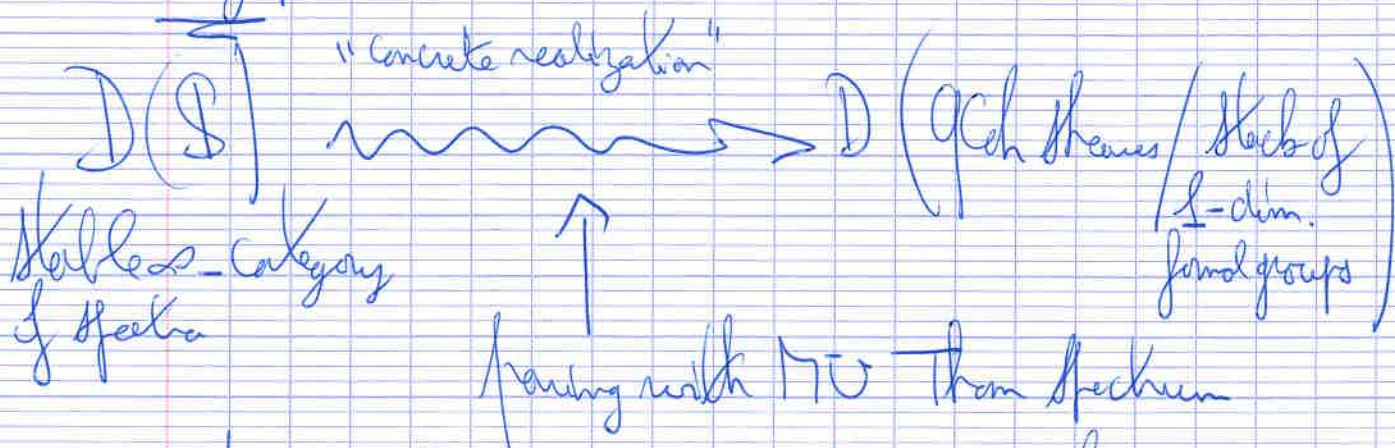 "concrete realization"
D(S) D(qCoh sheaves / stack of
1-dim.
formal groups)
stable ∞-category
of spectra
pairing with MU Thom spectrum